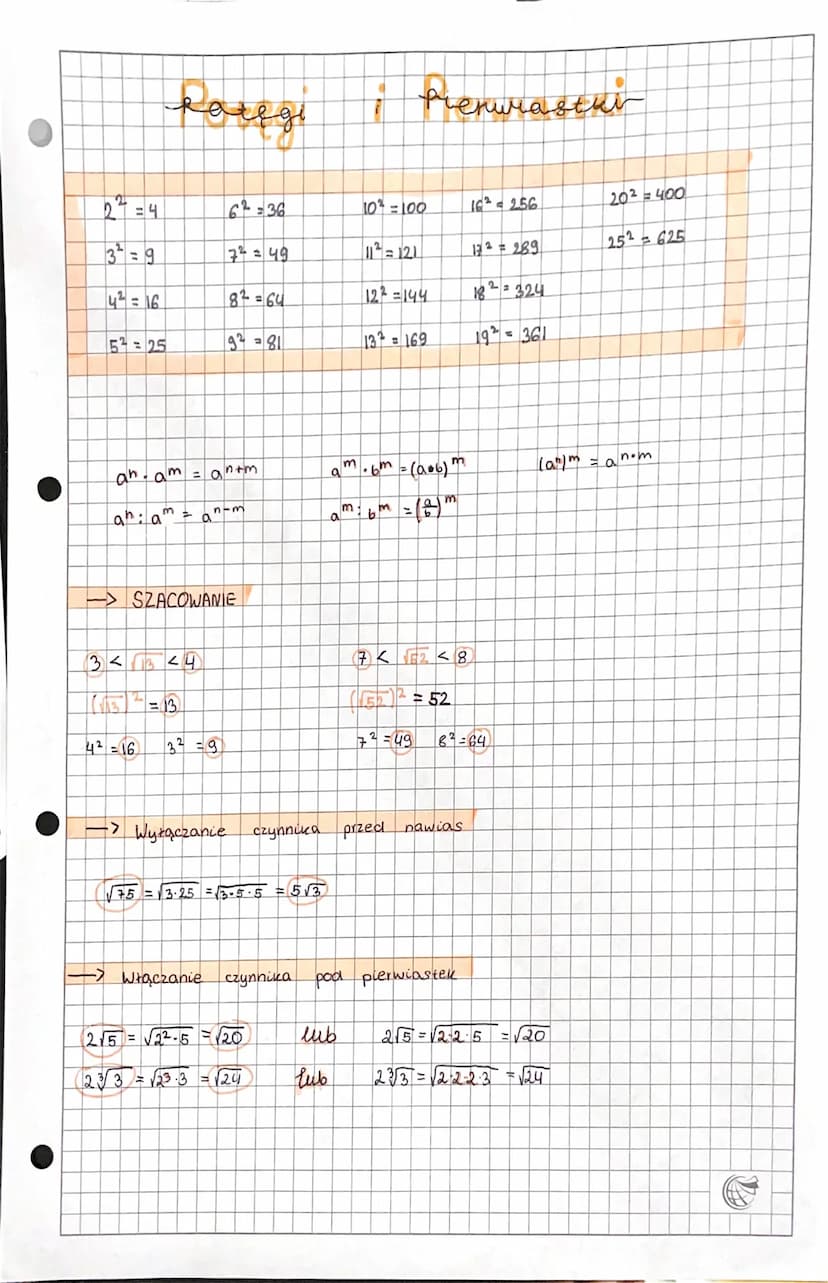 Potęgi i Pierwiastki
2² = 4 6² = 36 10² = 100 16² = 256 20² = 400
3² = 9 7² = 49 11² = 121 17² = 289 25² = 625
4² = 16 8² = 64 12² = 144 18² = 324
5² = 25 9² = 81 13² = 169 19² = 361
aⁿ · aᵐ = aⁿ⁺ᵐ aᵐ · bᵐ = (a·b)ᵐ (aⁿ)ᵐ = aⁿ·ᵐ
aⁿ : aᵐ = aⁿ⁻ᵐ aᵐ : bᵐ = (a/b)ᵐ
—> SZACOWANIE
3 < √13 < 4 7 < √52 < 8
(√13)² = 13 (√52)² = 52
4² = 16 3² = 9 7² = 49 8² = 64
—> Wyłączanie czynnika przed nawias
√75 = √3·25 = √3·5·5 = 5√3
—> Włączanie czynnika pod pierwiastek
2√5 = √2²·5 = √20 lub 2√5 = √2·2·5 = √20
2∛3 = √2³·3 = √24 lub 2∛3 = √2·2·2·3 = √24